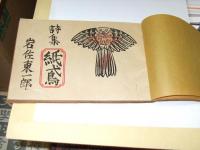 詩集
紙鳶
岩佐東一郎